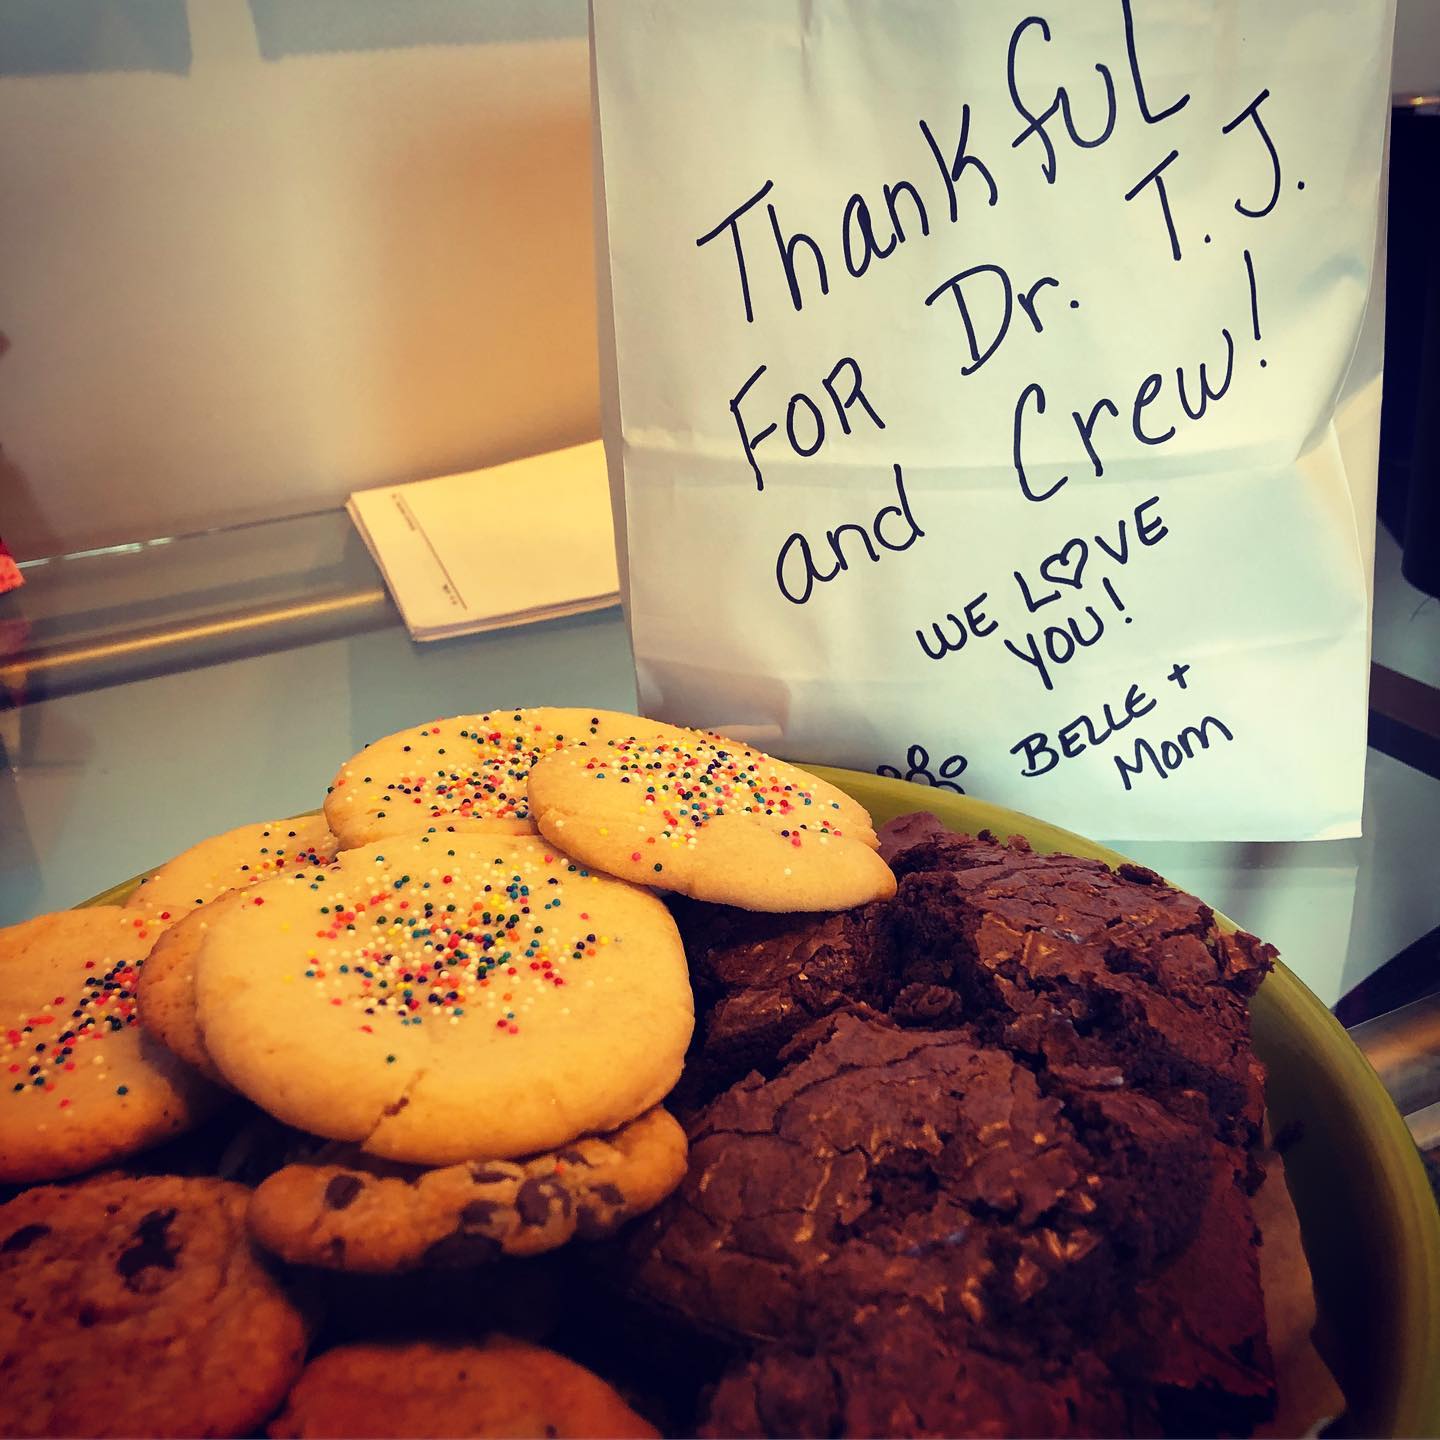 Thankful
FOR Dr. T.J.
and Crew!
WE LOVE
YOU!
BELLE +
Mom